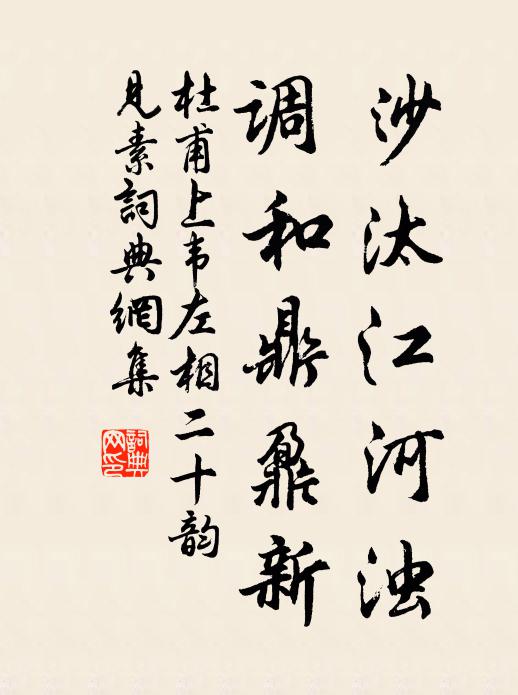 沙汰江河浊
调和鼎鼐新
杜甫上韦左相二十韵
见素詞典網集
詞典
网印